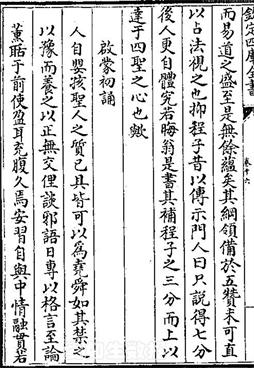 欽定四庫全書
卷十六
而易道之盛至是無餘蘊矣其綱領備於五贊未可直
以占法視之也抑程子昔以傳示門人曰只說得七分
後人更自體究若晦翁是書其補程子之三分而上以
達于四聖之心也歟
啟蒙初誦
人自嬰孩聖人之質已具皆可以為堯舜如其禁之
以豫而養之以正無交俚談邪語日專以格言至論
薰聒于前使盈耳充腹久焉安習自與中情融貫若